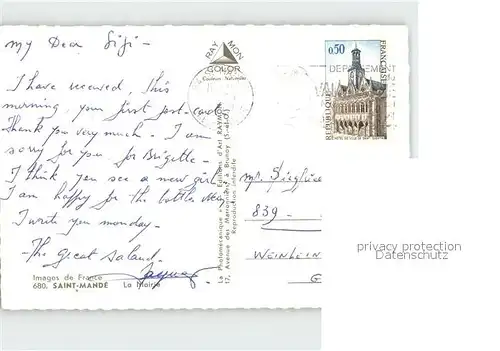 My Dear Sigi -
I have received, this
morning, your first post-card.
Thank you very much - I am
sorry for you, for Brigitte -
I think you see a new girl
I am happy for the bottles
I write you monday -
- The great salaud -
Images de France
680. SAINT-MANDÉ La Mairie
RAY MON
COLOR
Couleurs Naturelles
Le Photomécanique Editions d'Art RAYMON
17, Avenue des Marronniers à Brunoy (S.-et-O.)
Reproduction interdite
0,50
REPUBLIQUE
FRANÇAISE
DEPARTEMENT
VAL
Mr. Siegfried
839 -
WEINHEIM
G
privacy protection
Datenschutz